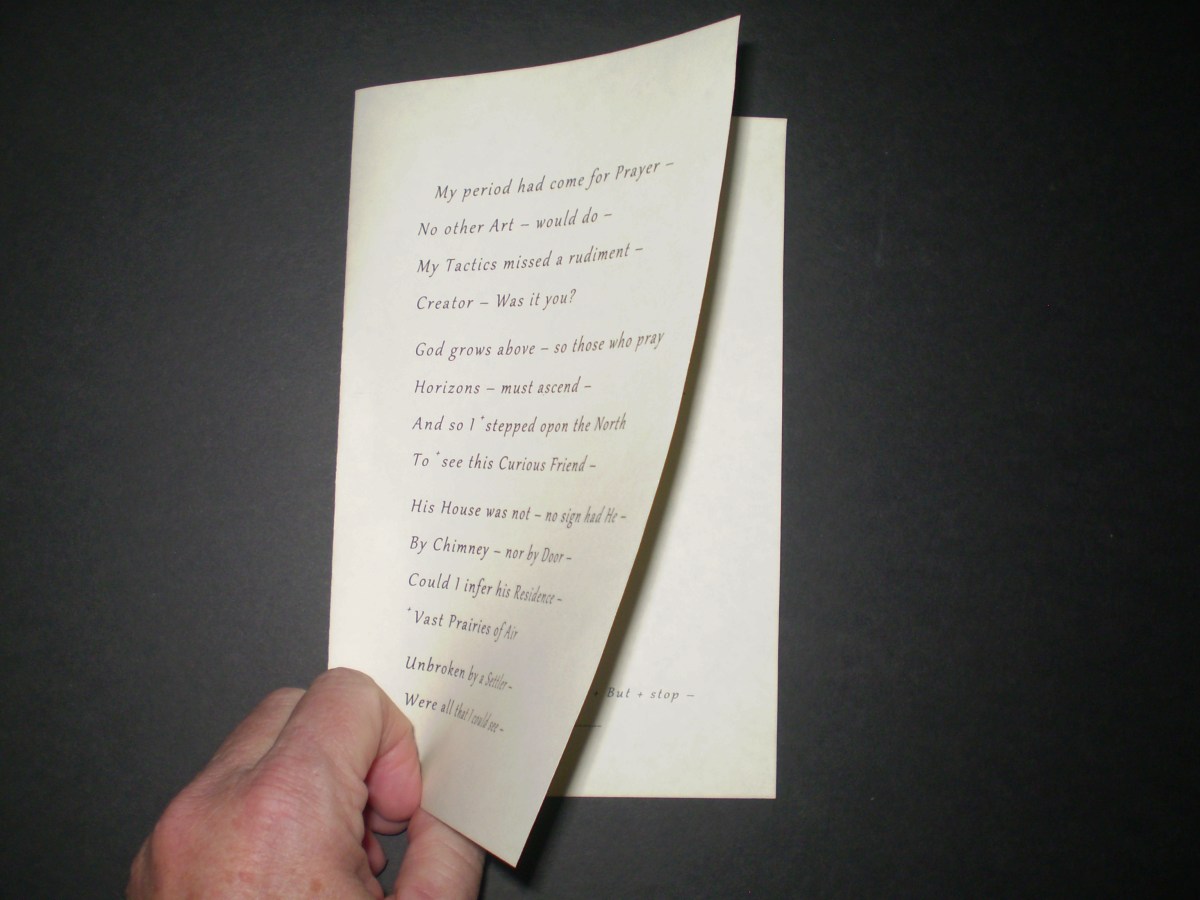 My period had come for Prayer –
No other Art – would do –
My Tactics missed a rudiment –
Creator – Was it you?
God grows above – so those who pray
Horizons – must ascend –
And so I +stepped opon the North
To +see this Curious Friend –
His House was not – no sign had He –
By Chimney – nor by Door –
Could I infer his Residence –
+Vast Prairies of Air
Unbroken by a Settler –
Were all that I could see –
+ But + stop –